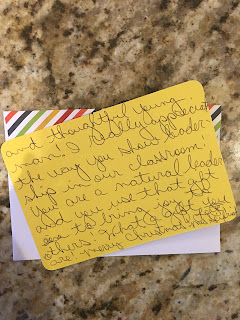 and thoughtful young
man! I really appreciate
the way you show leader-
ship in our classroom!
You are a natural leader
and you use that gift
to bring joy to
others. What a gift you
are! Merry Christmas